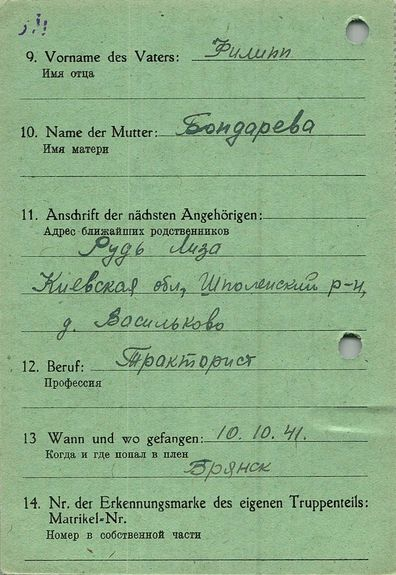 9. Vorname des Vaters: Филипп
Имя отца
10. Name der Mutter: Бондарева
Имя матери
11. Anschrift der nächsten Angehörigen:
Адрес ближайших родственников
Рудь Лиза
Киевская обл, Шполенский р-н,
д. Васильково
12. Beruf: Тракторист
Профессия
13 Wann und wo gefangen: 10. 10. 41.
Когда и где попал в плен
Брянск
14. Nr. der Erkennungsmarke des eigenen Truppenteils:
Matrikel-Nr.
Номер в собственной части